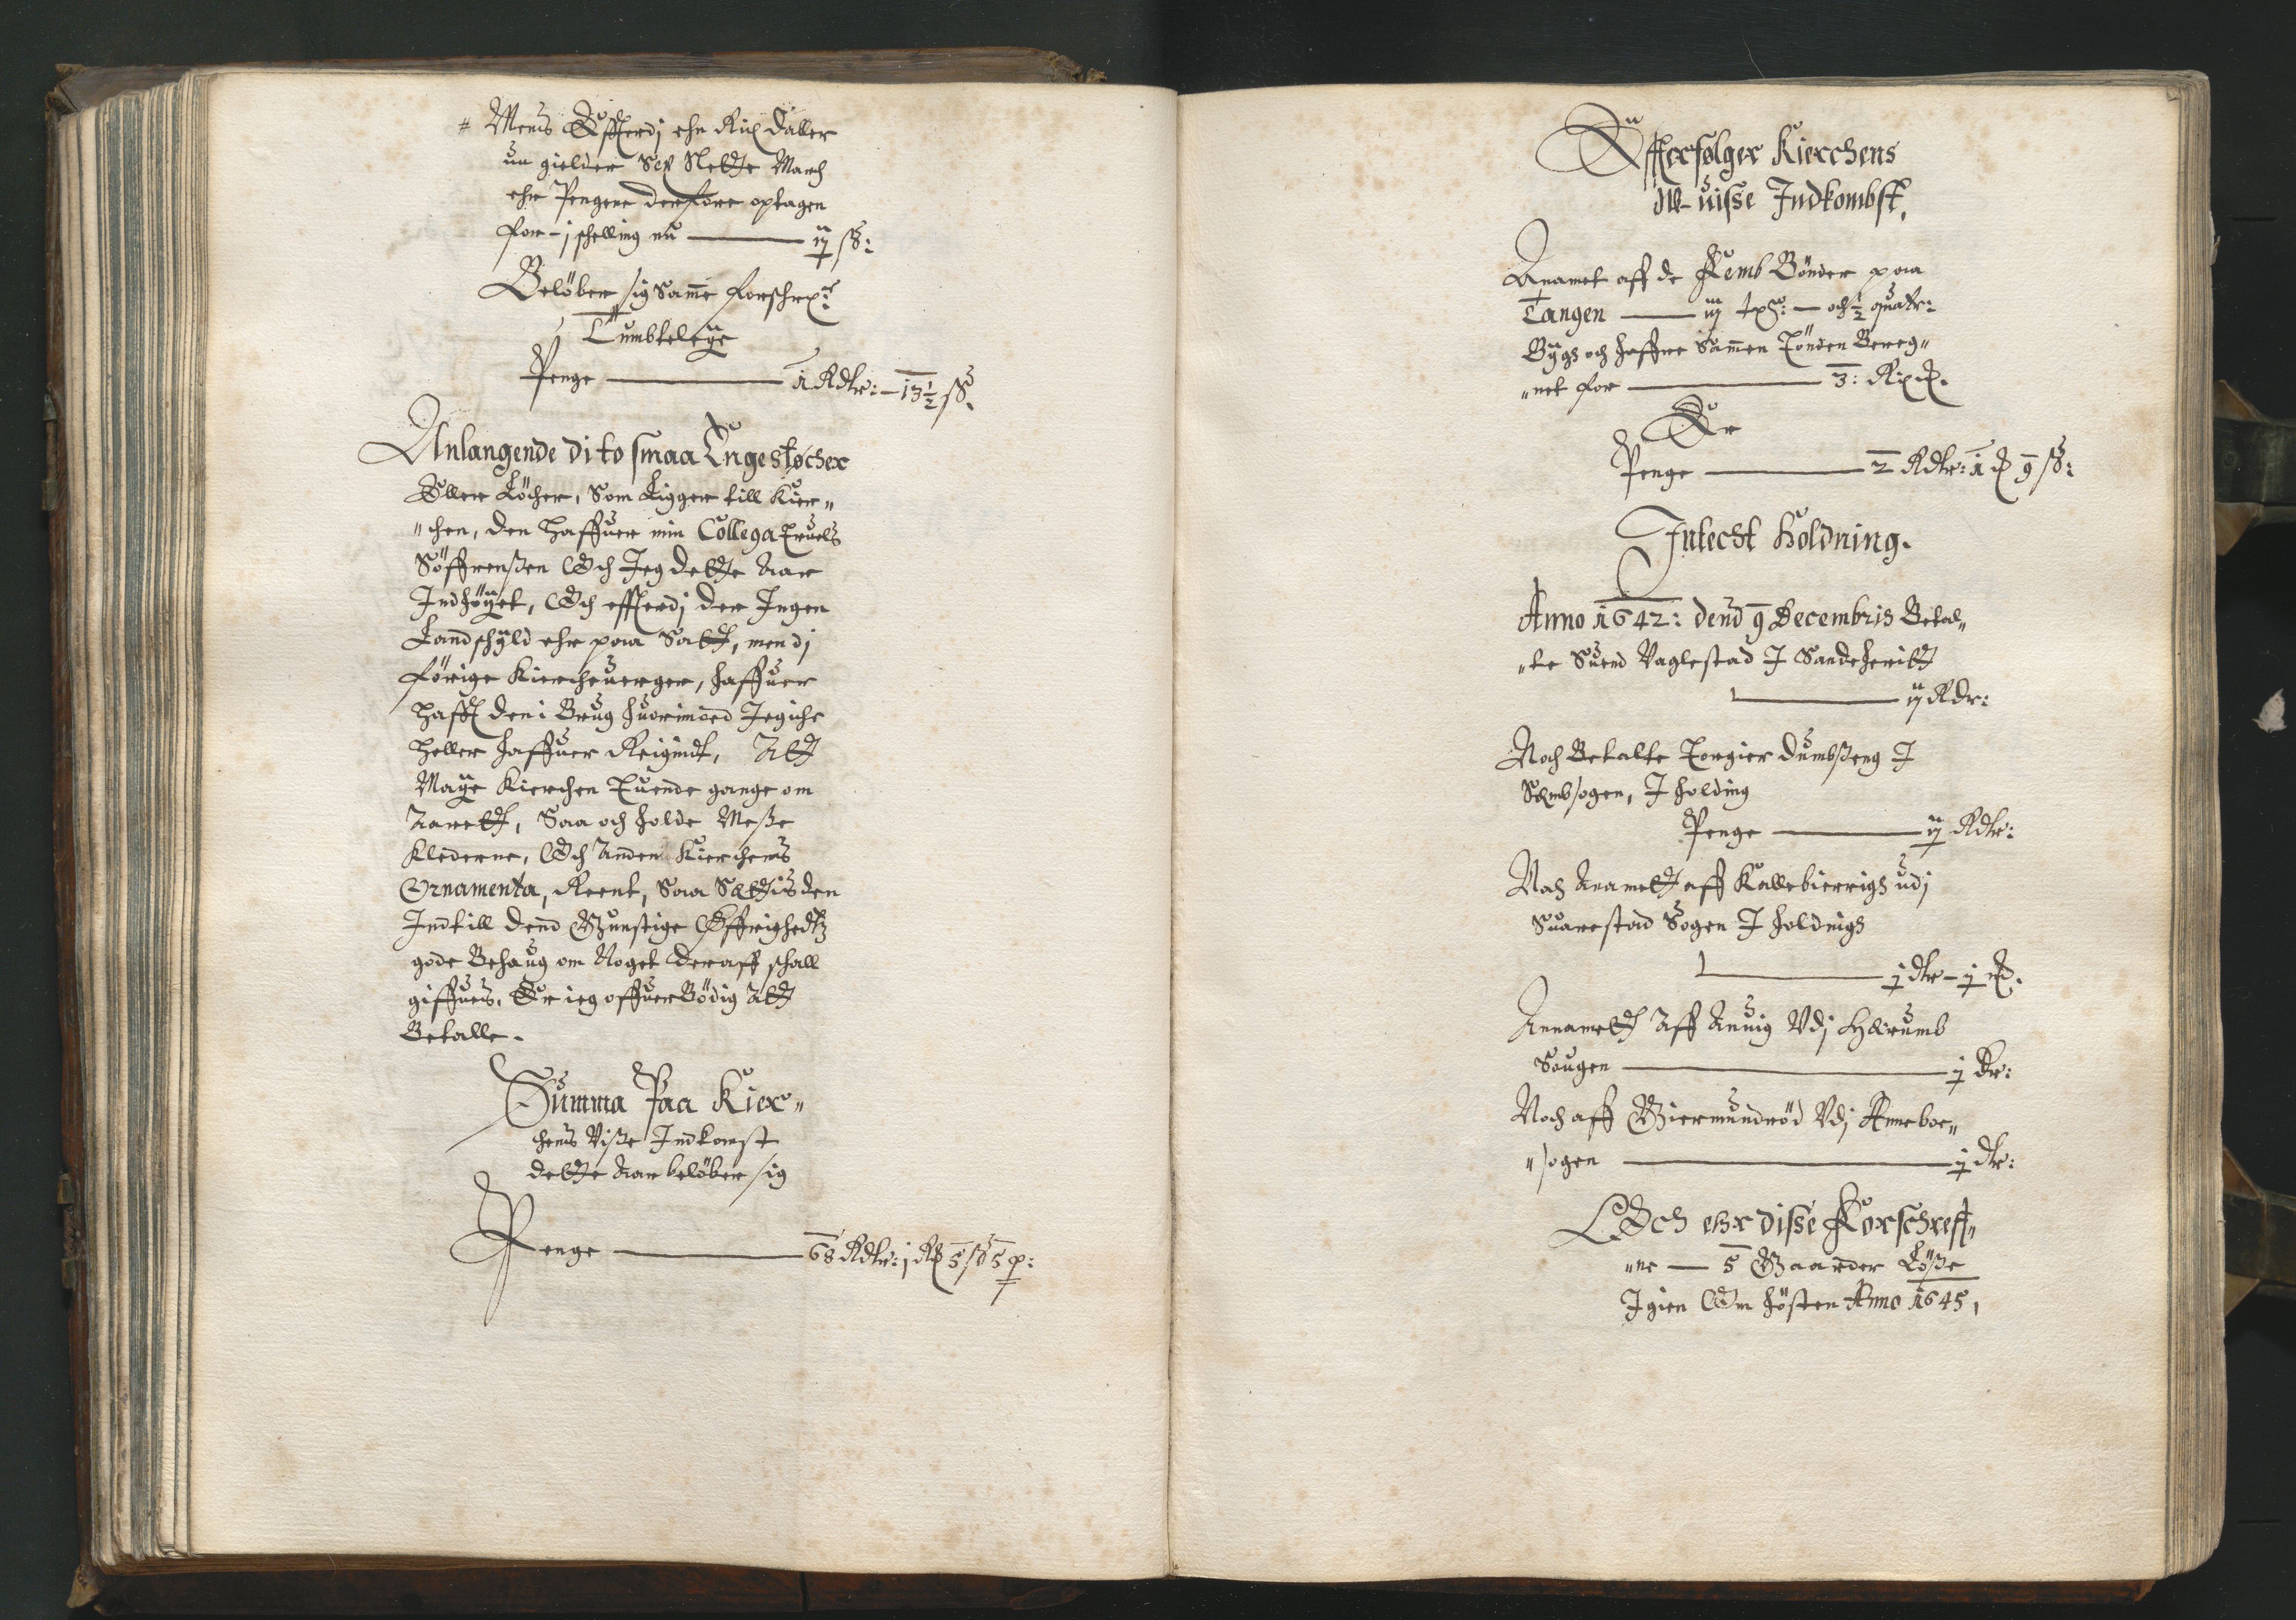 Mens Efftterdj ehn Rix Daller
nu gielder Sex Slette March
ehr Pengene derfore optagen
for - j schelling nu — ij sß:
Belöber sig Samme forschr:
Tumbteleye
Penge — 1 Rdlr: - 13½ sß.
Anlangende dito smaa Engestøcher
Eller Löcher, Som Ligger till Kier„
„chen, den haffuer min Collega Truels
Söffrenßen Och Jeg dette Aar
Indhöyet, Och effterdj der Ingen
Landschyld ehr paa Satt, men dj
förige Kiercheuerger, haffuer
hafft den i Brug huorimod Jeg ichr
heller haffuer Reignit, Att
Maye Kierchen Tuende gange om
Aarett, Saa och holde Meße
Klederne, Och Anden Kierchens
Ornamenta, Reent, Saa Settis den
Indtill dend Gunstige Öffrighedtz
gode Behaug om Noget deraff schall
giffues, Er ieg offuerBödig Att
Betalle.
Summa Paa Kier„
chens Viße Indkomst
dette Aar belöber sig
Penge — 68 Rdlr: j Rß 5 sß 5 p:
Effterfølger Kierchens
W-uisse Indkombst,
Anamet aff de Femb Bönder paa
Tangen — iij — och ½ quatr:
Bygh och haffre Sammen Tönden Bereg„
„net for — 3: Rix
Er
Penge — 2 Rdlr: 1 9 sß:
Intecht Holdning.
Anno 1642: dend 9 Decembris Betal„
„te Suend Vaglestad I Sandeheritt
— ij Rdr:
Noch Betalte Torgier Dumbßeng I
Sembsogen, I holding
Penge — ij Rdlr:
Noch Anamett aff Kallebierrigh udj
Suarestad Sogen I holdnigh
— j dlr - j
Annamett Aff Anuig Vdj Hærumb
Sougen — j Dr:
Noch aff Giermundröd Vdj Anneboe„
„sogen — j dlr:
Och ehr disse Forschreff„
„ne — 5 Gaarder Löße
Igien Om hösten Anno 1645,